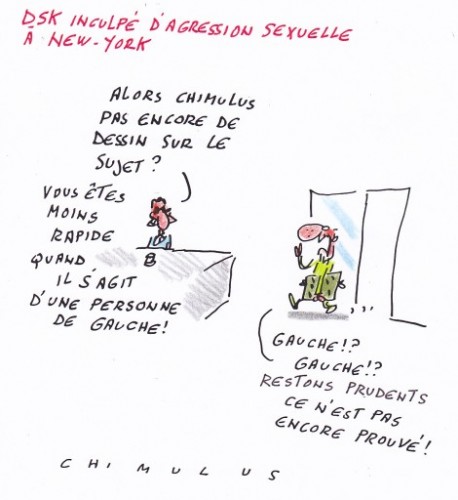 DSK INCULPÉ D'AGRESSION SEXUELLE
À NEW-YORK
ALORS CHIMULUS
PAS ENCORE DE
DESSIN SUR LE
SUJET ?
VOUS ÊTES
MOINS
RAPIDE
QUAND
IL S'AGIT
D'UNE PERSONNE
DE GAUCHE !
GAUCHE !?
GAUCHE !?
RESTONS PRUDENTS
CE N'EST PAS
ENCORE PROUVÉ !
CHIMULUS